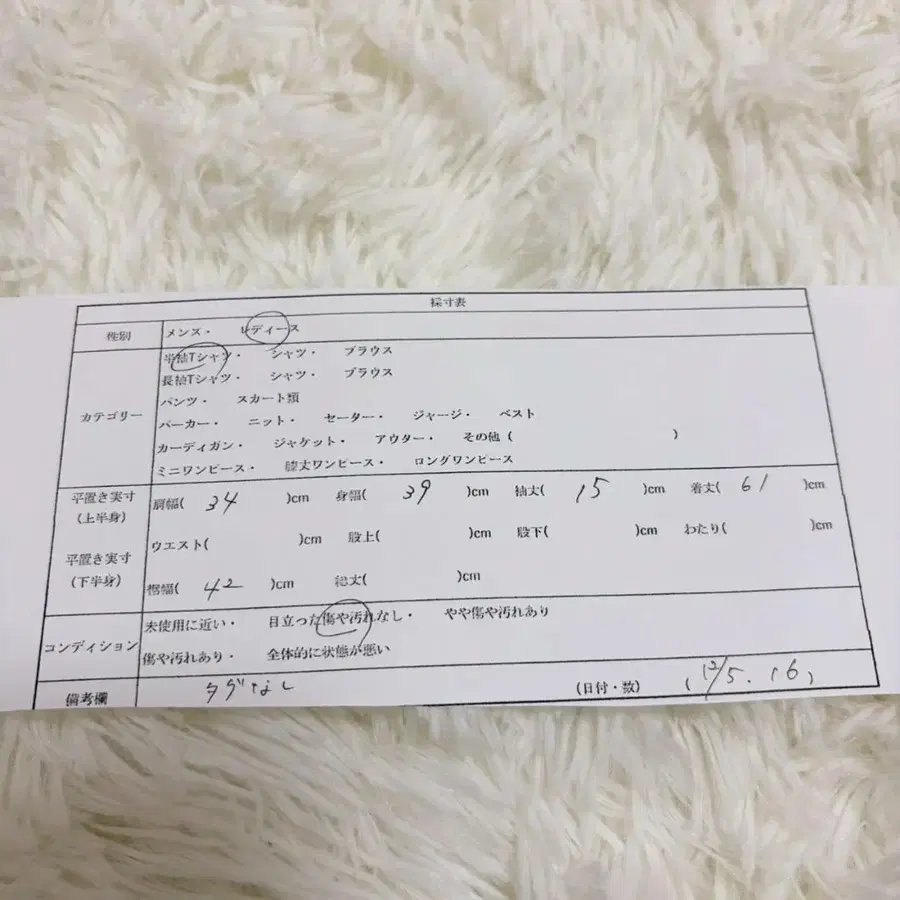 採寸表
性別 メンズ・ レディース
カテゴリー
半袖Tシャツ・ シャツ・ ブラウス
長袖Tシャツ・ シャツ・ ブラウス
パンツ・ スカート類
パーカー・ ニット・ セーター・ ジャージ・ ベスト
カーディガン・ ジャケット・ アウター・ その他 ( )
ミニワンピース・ 膝丈ワンピース・ ロングワンピース
平置き実寸
(上半身)
肩幅( 34 )cm 身幅( 39 )cm 袖丈( 15 )cm 着丈( 61 )cm
平置き実寸
(下半身)
ウエスト( )cm 股上( )cm 股下( )cm わたり( )cm
裾幅( 42 )cm 総丈( )cm
コンディション
未使用に近い・ 目立った傷や汚れなし・ やや傷や汚れあり
傷や汚れあり・ 全体的に状態が悪い
備考欄 タグなし (日付・数) ( 12/5. 16 )